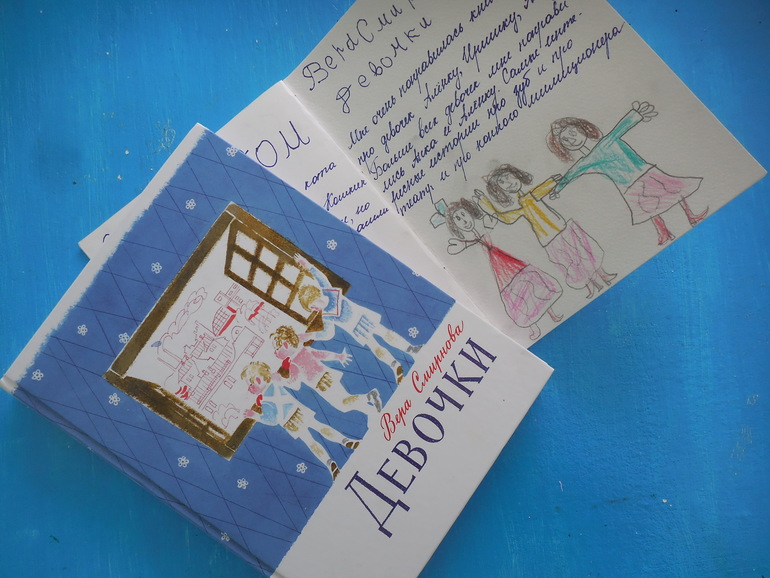 Вера Смир
девочки
Мне очень понравилась кни
про девочек Алёнку, Иришку,
Больше всех девочек мне понрави
лись Анка и Алёнку. Самые инте-
ресные истории про зуб и про
театр и про конного милиционера
ОМ
кота
но
Вера Смирнова
Девочки